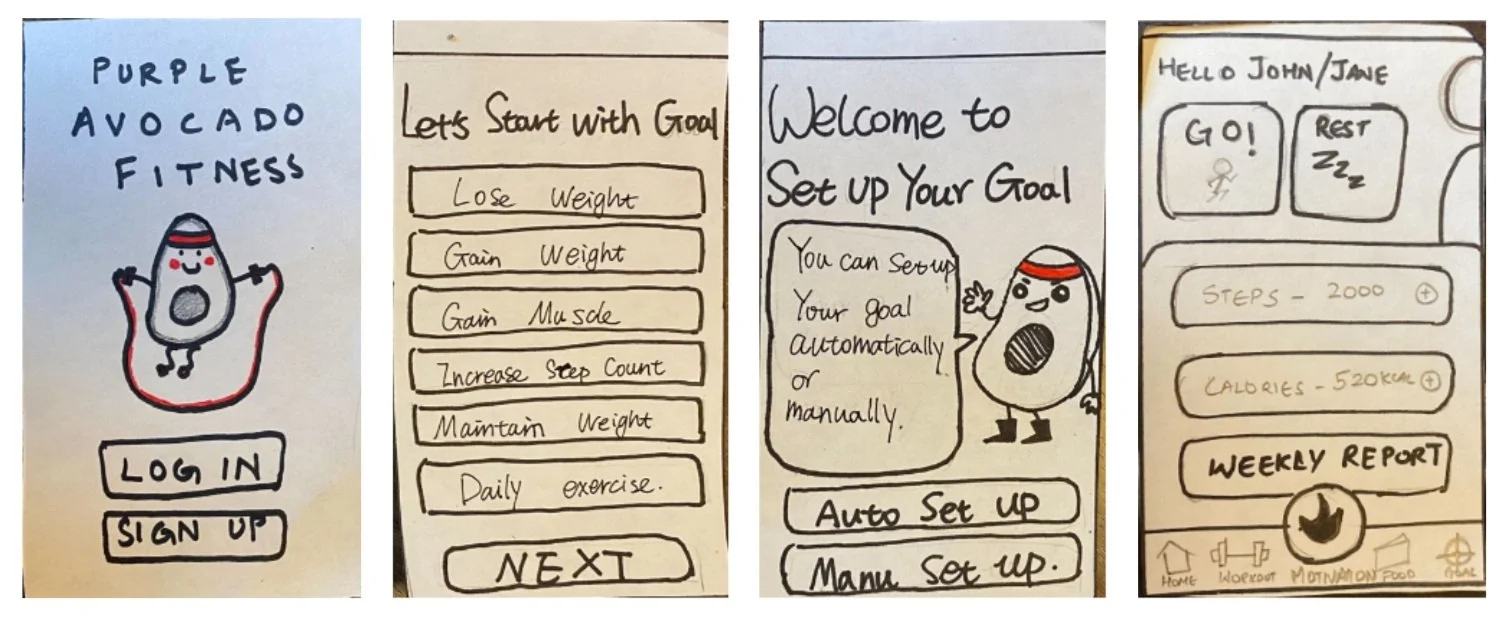 PURPLE
AVOCADO
FITNESS
LOG IN
SIGN UP
Let's Start with Goal
Lose Weight
Gain Weight
Gain Muscle
Increase Step Count
Maintain Weight
Daily exercise.
NEXT
Welcome to
Set up Your Goal
You can set up
Your goal
automatically
or
manually.
Auto Set up
Manu Set up.
HELLO JOHN/JANE
GO!
REST
ZZZ
STEPS - 2000 +
CALORIES - 520KCAL +
WEEKLY REPORT
HOME WORKOUT MOTIVATION FOOD GOAL